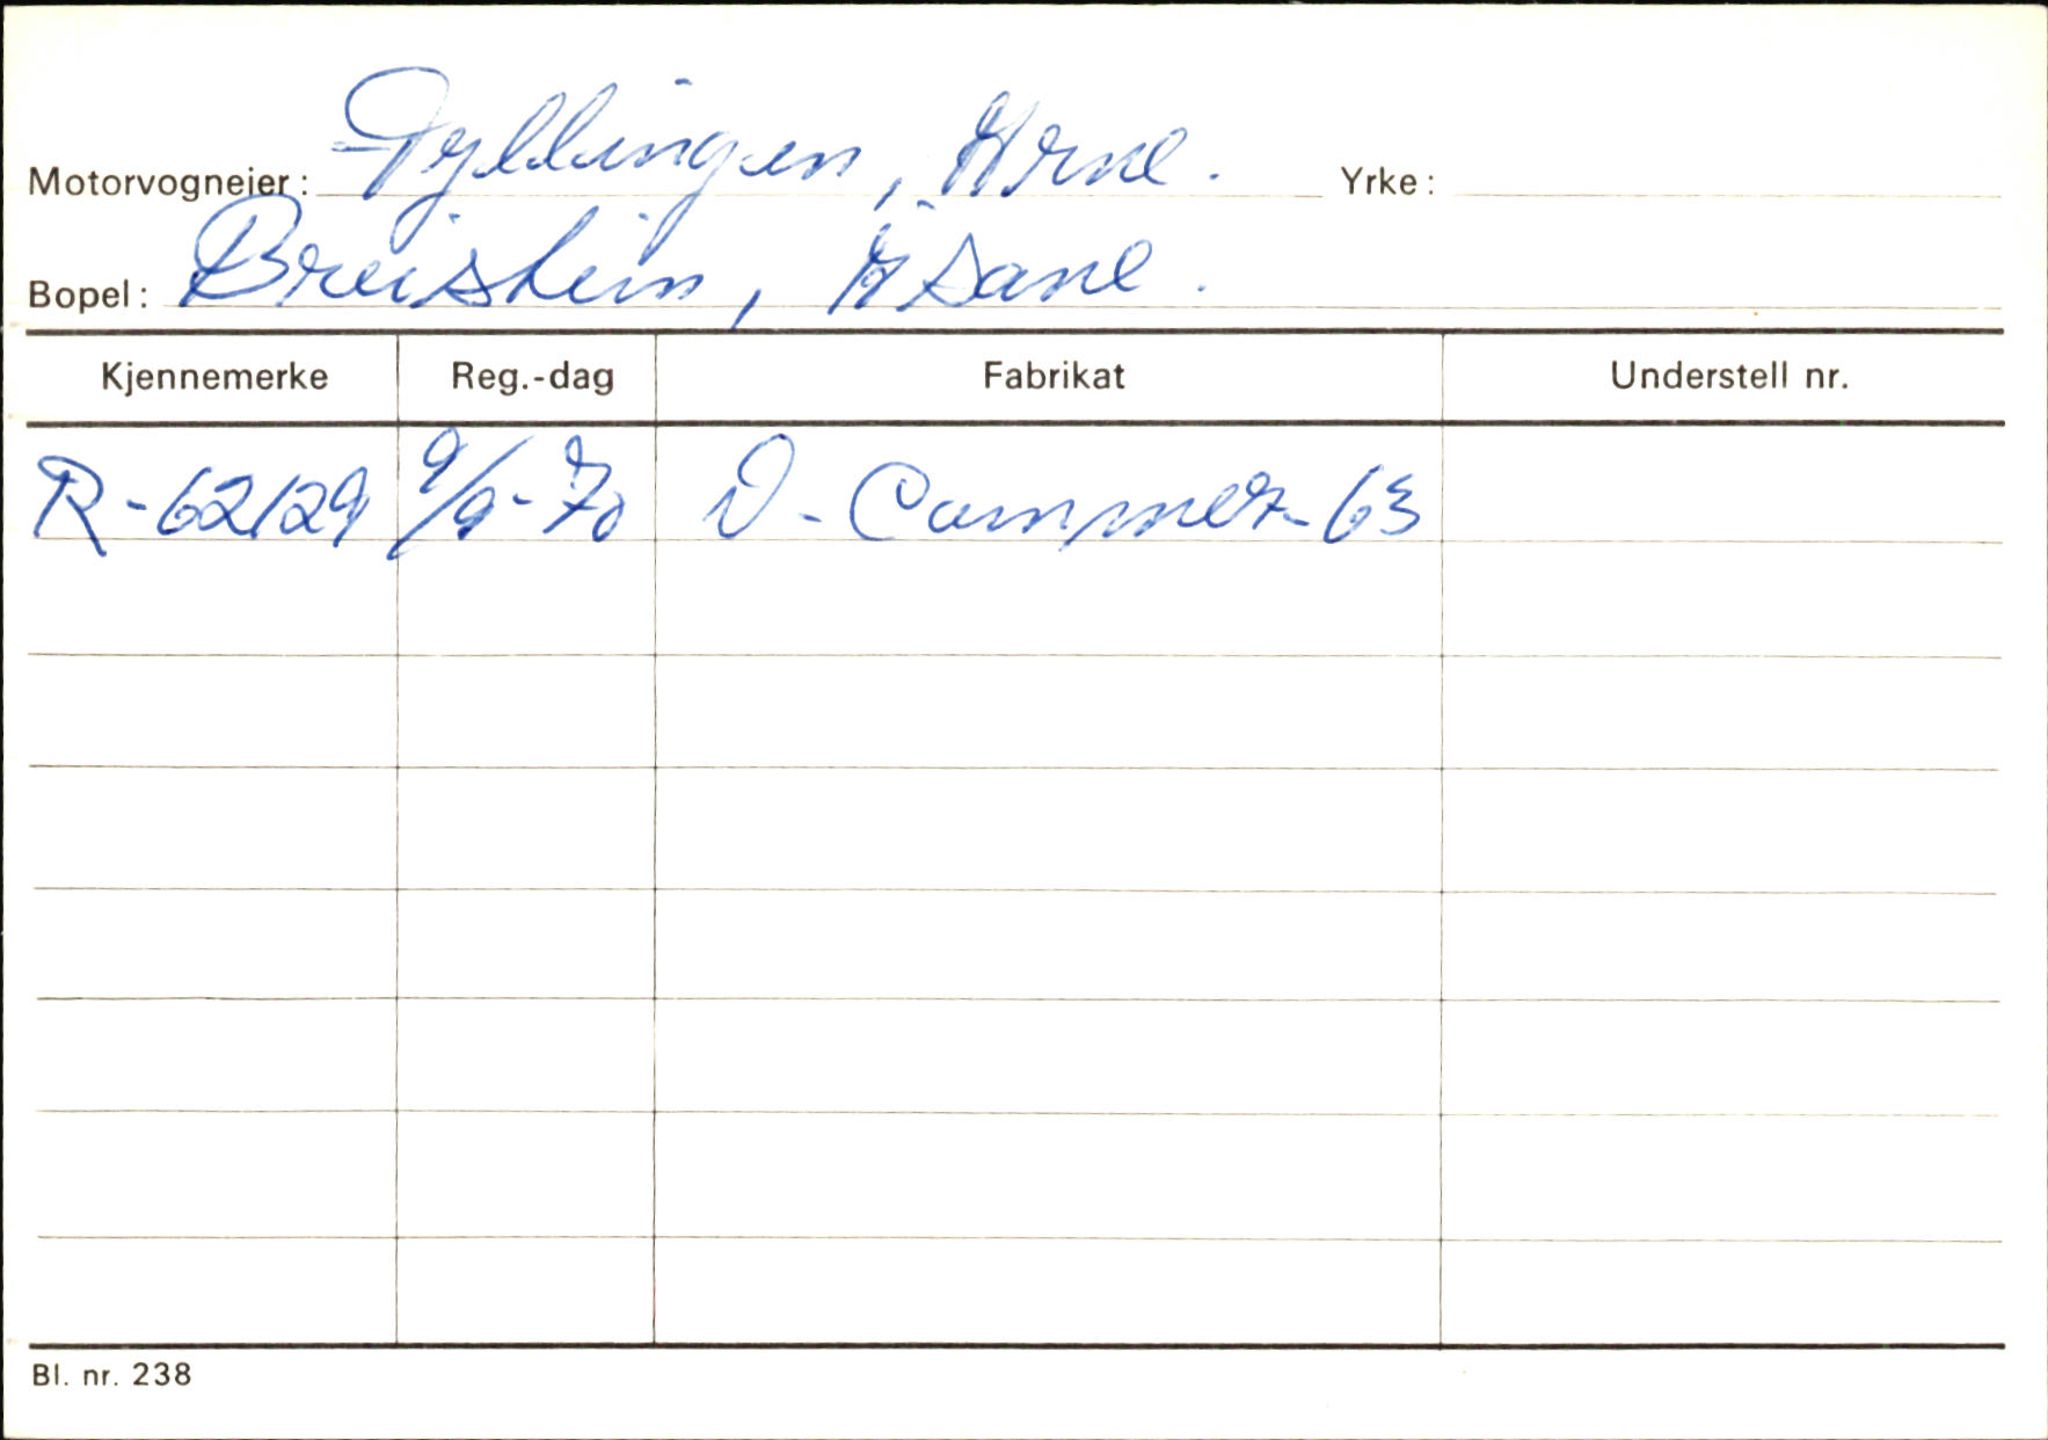 Motorvogneier: Gyllingen, Arne. Yrke:
Bopel: Breistein, Åsane.
Kjennemerke Reg.-dag Fabrikat Understell nr.
R-62129 9/9-70 D-Commer-63
Bl. nr. 238